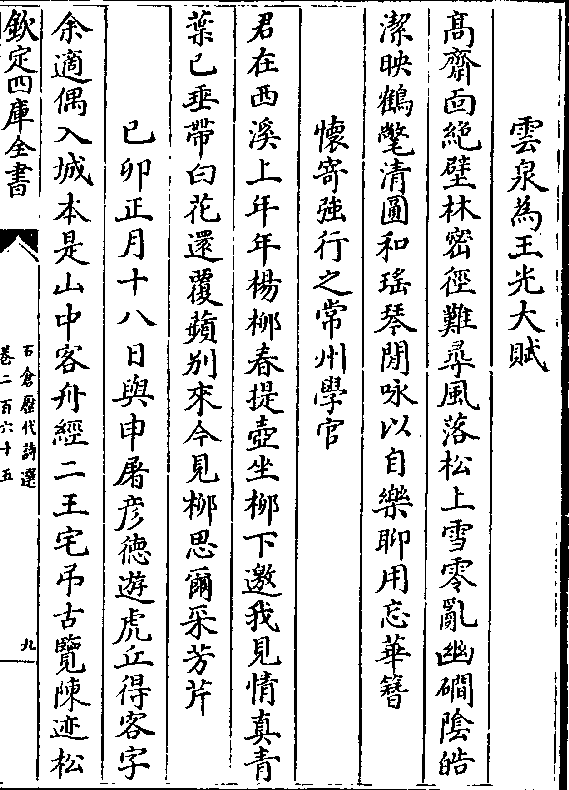 雲泉為王光大賦
髙齋面絶壁林密徑難尋風落松上雪零亂幽磵陰皓
潔映鶴氅清圓和瑤琴閒咏以自樂聊用忘華簪
懷寄強行之常州學官
君在西溪上年年楊栁春提壺坐栁下邀我見情真青
葉已垂帶白花還覆蘋别來今見栁思爾采芳芹
己卯正月十八日與申屠彦德遊虎丘得客字
余適偶入城本是山中客舟經二王宅弔古覽陳迹松
欽定四庫全書
石倉歷代詩選
卷二百六十五
九